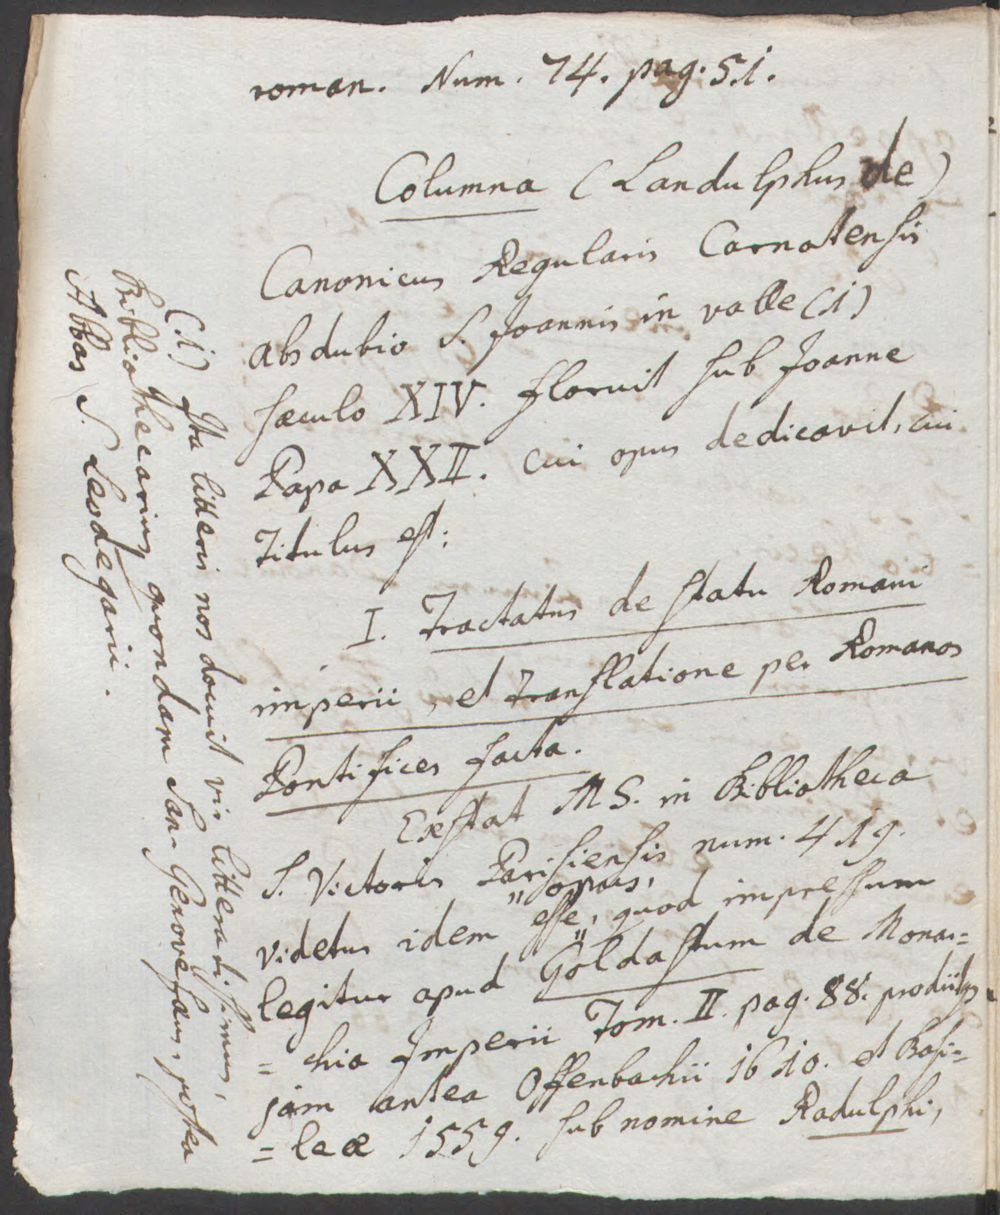 roman. Num. 74. pag. 51.
Columna (Landulphus de)
Canonicus Regularis Carnotensis
absdubio S. Joannis in valle (1)
sæculo XIV. floruit sub Joanne
Papa XXII. cui opus dedicavit, cui
titulus est:
I. Tractatus de statu Romani
imperii, et translatione per Romanos
Pontifices facta.
Exstat MS. in Bibliotheca
S. Victoris Parisiensis num. 419.
"opus,
videtur idem esse, quod impressum
legitur apud Goldastum de Monar=
=chia Imperii Tom. II. pag. 88. prodiitque
jam antea Offenbachii 1610. et Basi=
=leæ 1559. sub nomine Radulphi,
(1) Ita litteris nos docuit vir litteratissimus,
Bibliothecarius quondam San-Genovefanus, postea
Abbas S. Leodegarii.